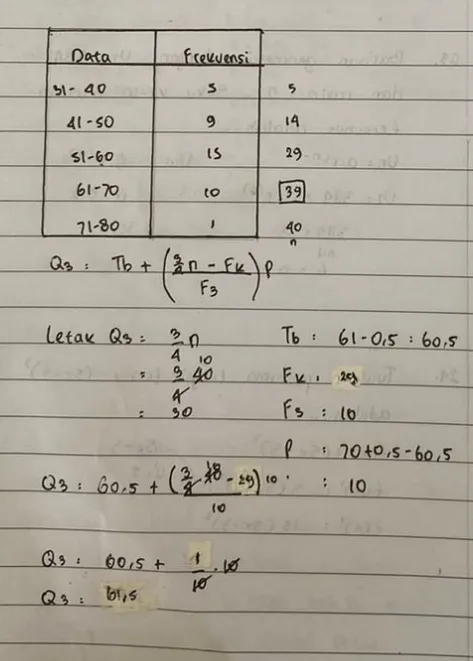 Data Frekuensi
31-40 5 5
41-50 9 14
51-60 15 29
61-70 10 39
71-80 1 40
n
Q3 : Tb + (3/4 n - Fk / F3) P
Letak Q3 = 3/4 n Tb : 61-0,5 : 60,5
= 3/4 40 10 Fk : 29
= 30 F3 : 10
P : 70+0,5-60,5
Q3 : 60,5 + (3/4 40 10 - 29 / 10) 10 : 10
Q3 : 60,5 + 1/10 . 10
Q3 : 61,5